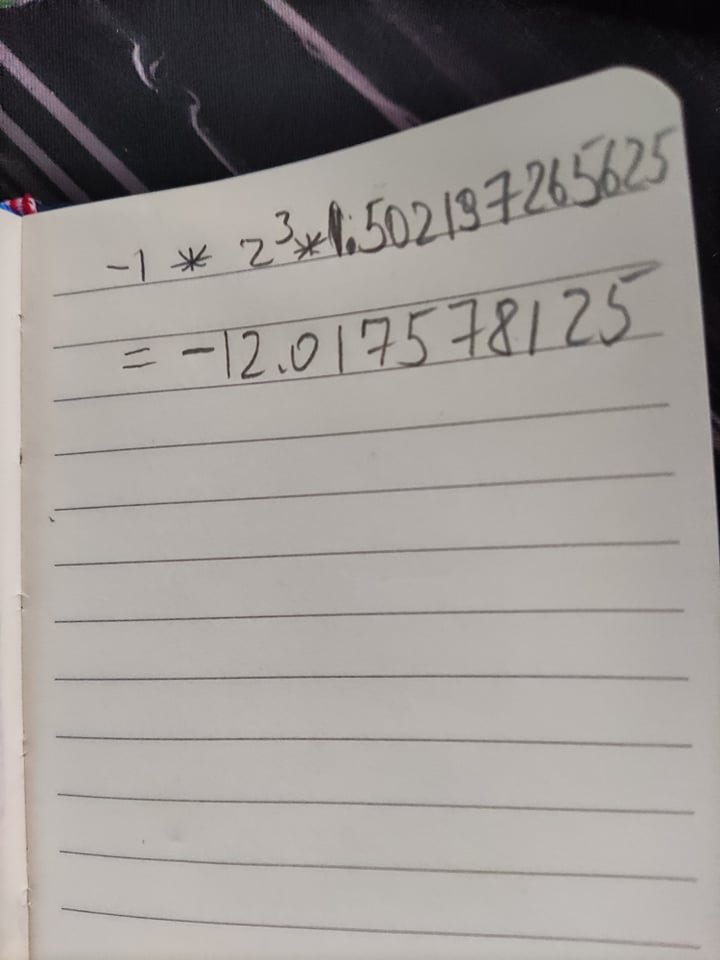 -1 * 2³ * 1.502197265625
= -12.017578125